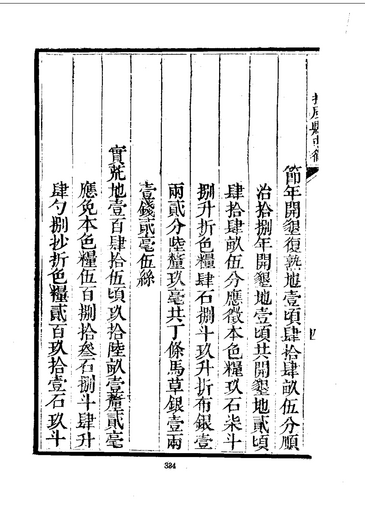 節年開墾復熟地壹頃肆拾肆畝伍分順
治拾捌年開墾地壹頃共開墾地貳頃
肆拾肆畝伍分應徵本色糧玖石柒斗
捌升折色糧肆石捌斗玖升折布銀壹
兩貳分陸釐玖毫共丁條馬草銀壹兩
壹錢貳毫伍絲
實荒地壹百肆拾伍頃玖拾陸畝壹釐貳毫
應免本色糧伍百捌拾叄石捌斗肆升
肆勺捌抄折色糧貳百玖拾壹石玖斗
334